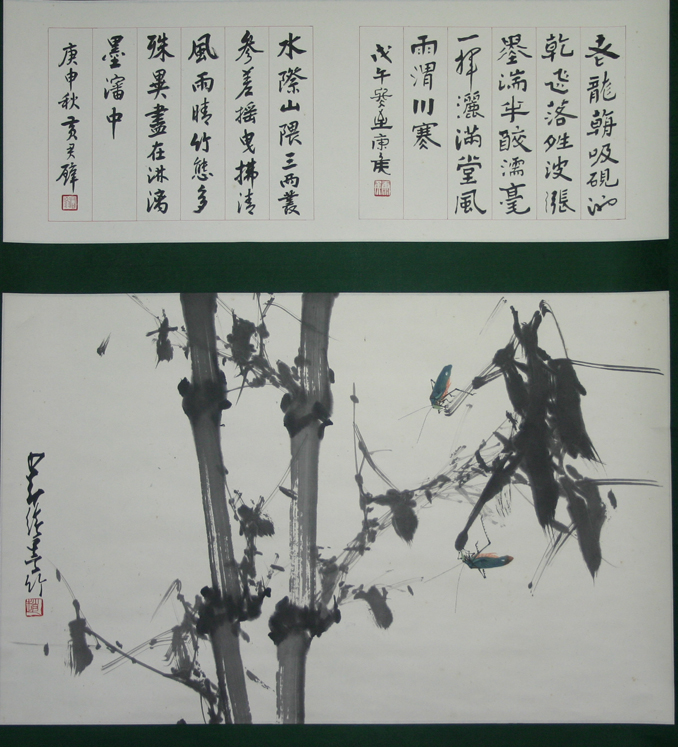 老龍吸硯池
乾飛落波漲
墨湍半濡毫
一揮灑滿堂風
雨渭川寒
戊午
水際山隈三兩叢
參差搖曳拂清
風雨晴竹態多
殊異盡在淋漓
墨瀋中
庚申秋黃君璧
少昂墨竹